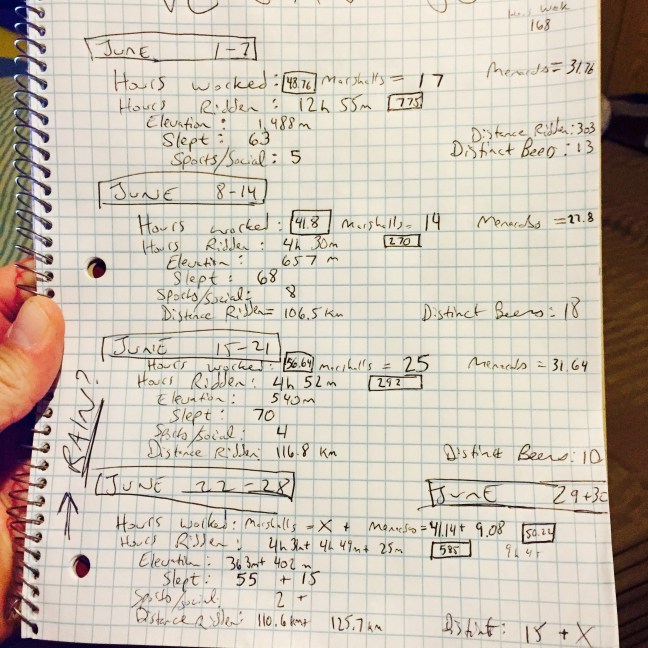 168
JUNE 1-7
Hours worked: 48.76 Marshalls = 17 Menards = 31.76
Hours Ridden: 12h 55m 775
Elevation: 1,488m Distance Ridden: 303
Slept: 63 Distinct Beers: 13
Sports/Social: 5
JUNE 8-14
Hours worked: 41.8 Marshalls = 14 Menards = 27.8
Hours Ridden: 4h 30m 270
Elevation: 657 m
Slept: 68
Sports/Social: 8
Distance Ridden = 106.5 km Distinct Beers: 18
JUNE 15-21
Hours worked: 56.64 Marshalls = 25 Menards = 31.64
Hours Ridden: 4h 52m 292
Elevation: 540m
Slept: 70
Sports/Social: 4
Distance Ridden: 116.8 km Distinct Beers: 10
RAIN?
JUNE 22-28 JUNE 29+30
Hours worked: Marshalls = X + Menards = 41.14 + 9.08 50.22
Hours Ridden: 4h 49m + 25m 585
Elevation: 363m + 402m
Slept: 55 + 15
Sports/Social: 2 +
Distance Ridden: 110.6km + 125.7km Distinct: 15 + X